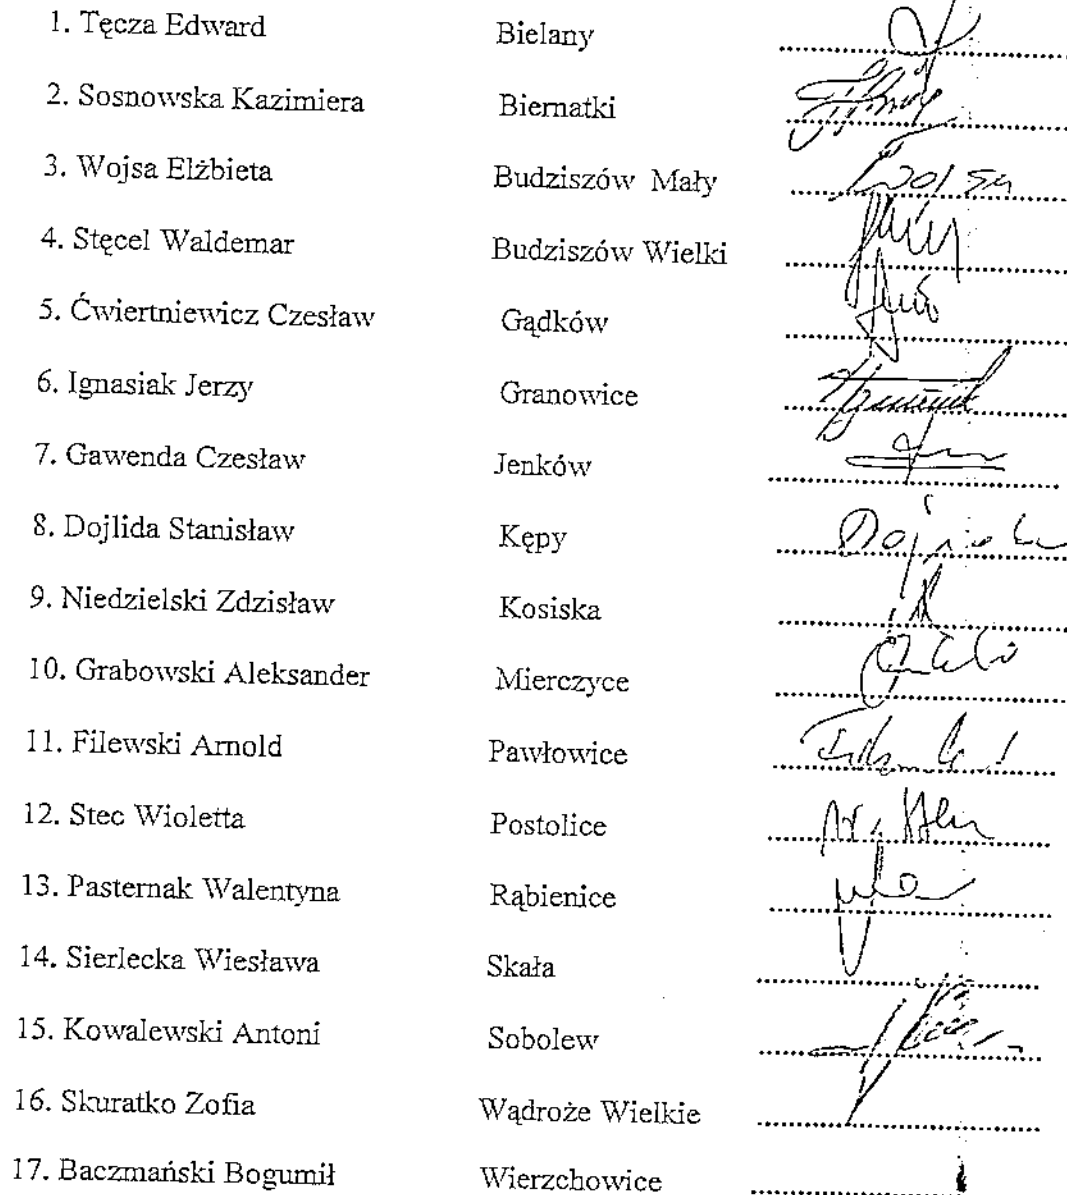 1. Tęcza Edward Bielany
2. Sosnowska Kazimiera Biernatki
3. Wojsa Elżbieta Budziszów Mały Wojsa
4. Stęcel Waldemar Budziszów Wielki
5. Ćwiertniewicz Czesław Gądków
6. Ignasiak Jerzy Granowice
7. Gawenda Czesław Jenków
8. Dojlida Stanisław Kępy
9. Niedzielski Zdzisław Kosiska
10. Grabowski Aleksander Mierczyce
11. Filewski Arnold Pawłowice
12. Stec Wioletta Postolice
13. Pasternak Walentyna Rąbienice
14. Sierlecka Wiesława Skała
15. Kowalewski Antoni Sobolew
16. Skuratko Zofia Wądroże Wielkie
17. Baczmański Bogumił Wierzchowice